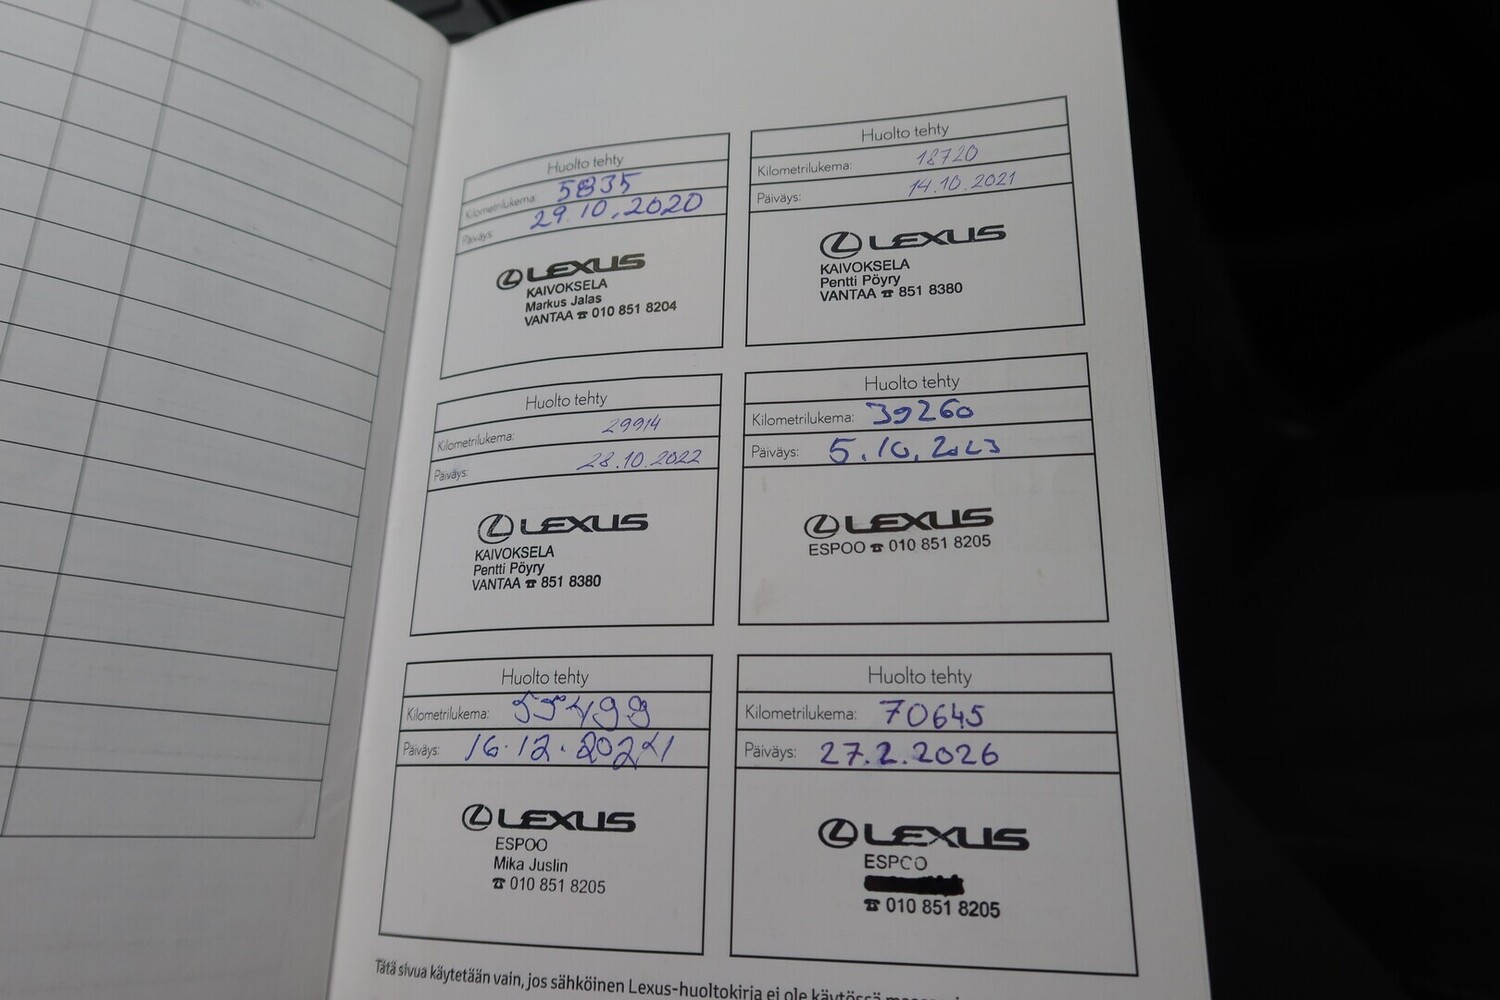 Huolto tehty
Kilometrilukema: 5835
Päiväys: 29.10.2020
LEXUS
KAIVOKSELA
Markus Jalas
VANTAA ☎ 010 851 8204
Huolto tehty
Kilometrilukema: 18720
Päiväys: 14.10.2021
LEXUS
KAIVOKSELA
Pentti Pöyry
VANTAA ☎ 851 8380
Huolto tehty
Kilometrilukema: 29914
Päiväys: 28.10.2022
LEXUS
KAIVOKSELA
Pentti Pöyry
VANTAA ☎ 851 8380
Huolto tehty
Kilometrilukema: 39260
Päiväys: 5.10.2023
LEXUS
ESPOO ☎ 010 851 8205
Huolto tehty
Kilometrilukema: 55499
Päiväys: 16.12.2024
LEXUS
ESPOO
Mika Juslin
☎ 010 851 8205
Huolto tehty
Kilometrilukema: 70645
Päiväys: 27.2.2026
LEXUS
ESPOO
☎ 010 851 8205
Tätä sivua käytetään vain, jos sähköinen Lexus-huoltokirja ei ole käytössä